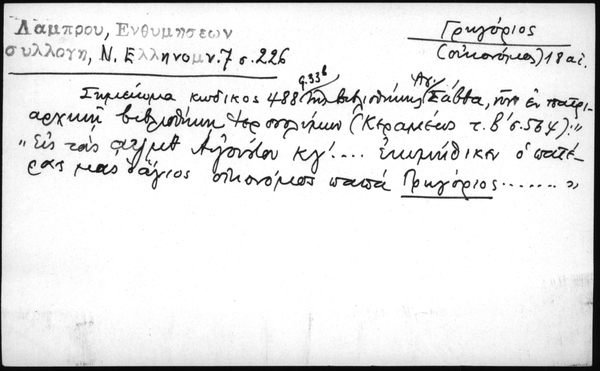 Λαμπρου, Ενθυμησεων
συλλογη, Ν. Ελληνομν. 7 σ. 226
Γρηγόριος
(οἰκονόμος) 18 αἰ.
φ. 33β Ἁγ.
Σημείωμα κώδικος 488 τῆς βιβλιοθήκης Σάββα, νῦν ἐν πατρι-
αρχικῇ βιβλιοθήκῃ Ἱεροσολύμων (Κεραμέως τ. β' σ. 564):
"Εἰς τοὺς αψμθ Αὐγούστου κγ'.... ἐκοιμήθικεν ὁ πατέ-
ρας μας ὁ ἅγιος οἰκονόμος παπᾶ Γρηγόριος ....... "